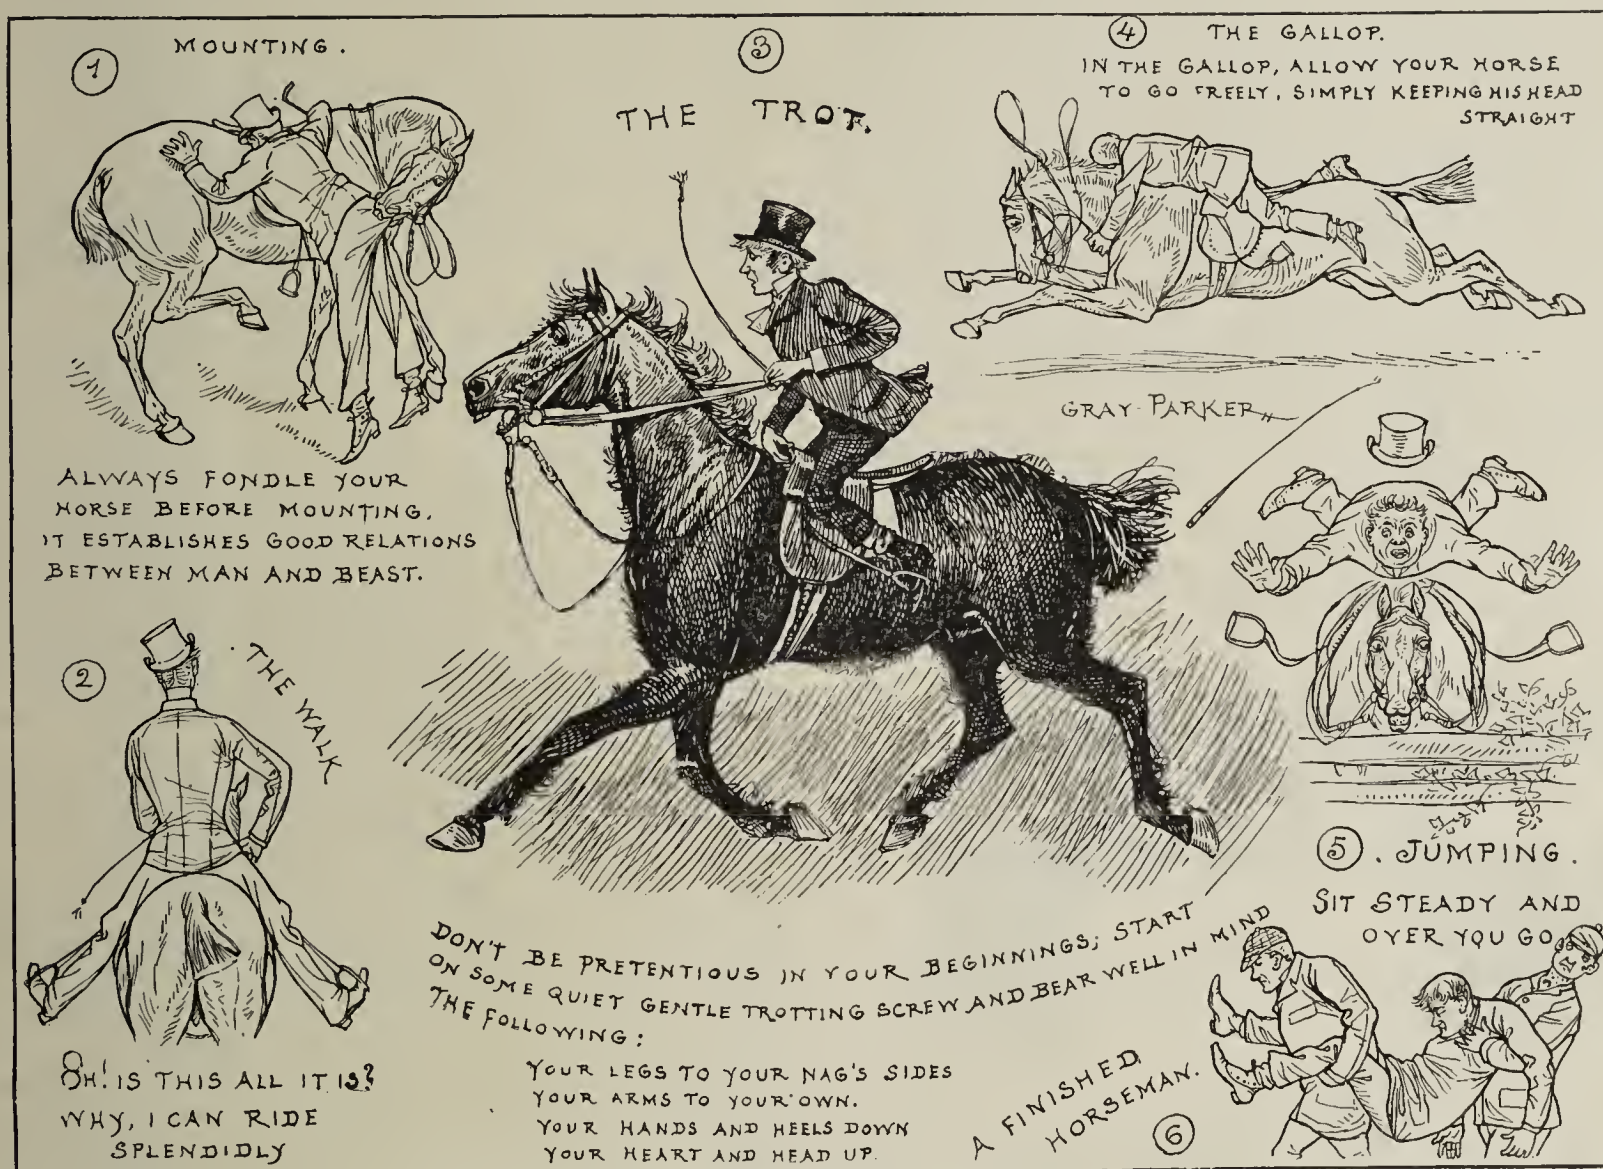 1
MOUNTING.
ALWAYS FONDLE YOUR
HORSE BEFORE MOUNTING,
IT ESTABLISHES GOOD RELATIONS
BETWEEN MAN AND BEAST.
2
THE WALK
OH! IS THIS ALL IT IS?
WHY, I CAN RIDE
SPLENDIDLY
3
THE TROT.
DON'T BE PRETENTIOUS IN YOUR BEGINNINGS; START
ON SOME QUIET GENTLE TROTTING SCREW AND BEAR WELL IN MIND
THE FOLLOWING:
YOUR LEGS TO YOUR NAG'S SIDES
YOUR ARMS TO YOUR OWN.
YOUR HANDS AND HEELS DOWN
YOUR HEART AND HEAD UP.
4
THE GALLOP.
IN THE GALLOP, ALLOW YOUR HORSE
TO GO FREELY, SIMPLY KEEPING HIS HEAD
STRAIGHT
GRAY-PARKER
5. JUMPING.
SIT STEADY AND
OVER YOU GO.
A FINISHED
HORSEMAN.
6